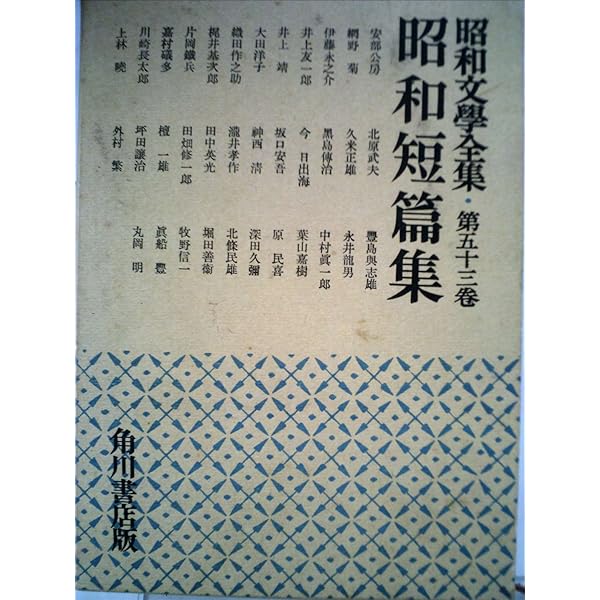 昭和文學全集・第五十三卷
昭和短篇集
安部公房
網野 菊
伊藤永之介
井上友一郎
井上 靖
大田洋子
織田作之助
梶井基次郎
片岡鐵兵
嘉村礒多
川崎長太郎
上林 曉
北原武夫
久米正雄
黑島傳治
今 日出海
坂口安吾
神西 清
瀧井孝作
田中英光
田畑修一郎
檀 一雄
坪田讓治
外村 繁
豐島與志雄
永井龍男
中村眞一郎
葉山嘉樹
原 民喜
深田久彌
北條民雄
堀田善衞
牧野信一
眞船 豐
丸岡 明
角川書店版